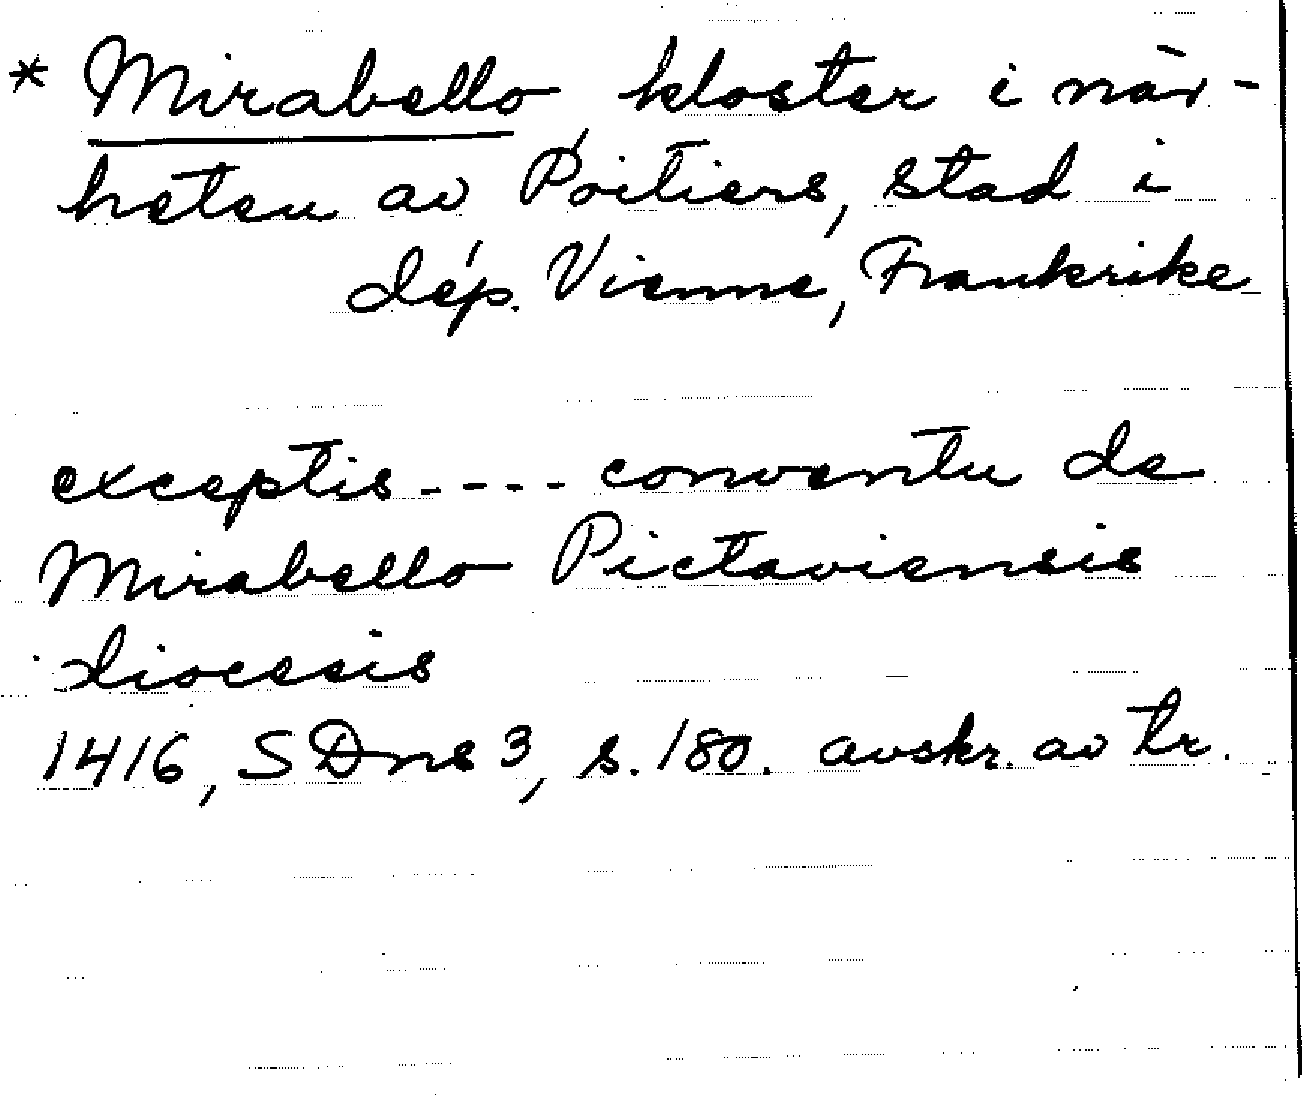 * Mirabello kloster i när-
heten av Poitiers, stad i
dép. Vienne, Frankrike
exceptis - - - - conventu de
Mirabello Pictaviensis
diocesis
1416, SDns 3, s. 180. avskr. av tr.